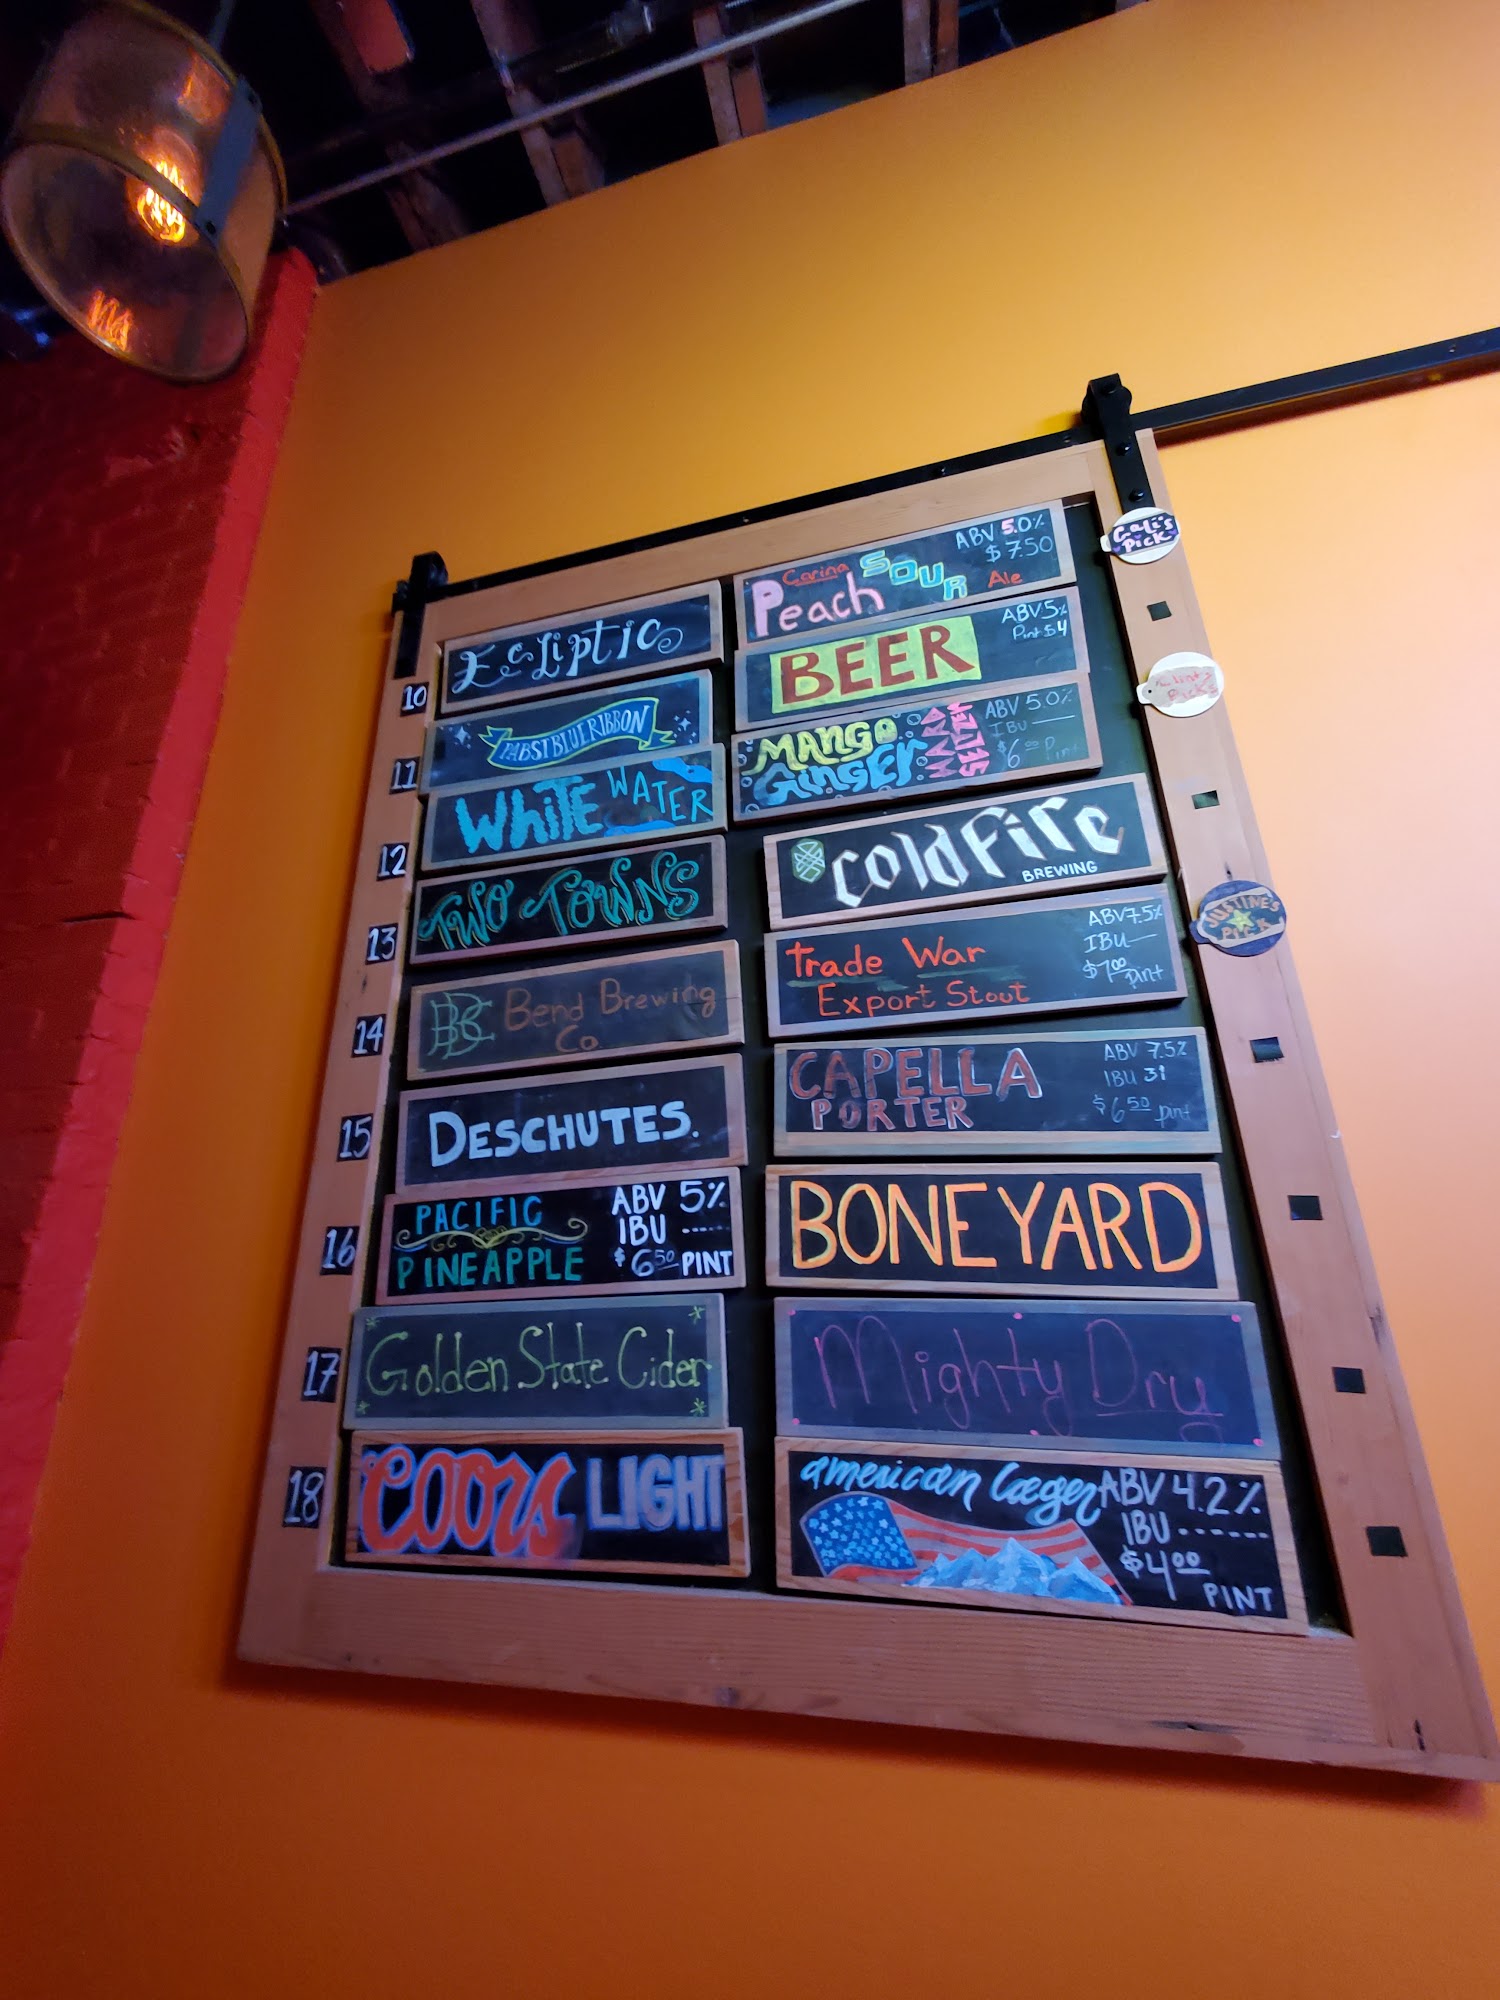 10
Ecliptic
Carina
Peach Sour Ale
ABV 5.0%
$7.50
Cali's
Pick
11
PABST BLUE RIBBON
BEER
ABV 5%
Pint $4
Clint's
Picks
12
WHITE WATER
MANGO
GINGER
HARD
SELTZER
ABV 5.0%
IBU —
$6.00 Pint
13
TWO TOWNS
COLDFIRE
BREWING
JUSTINE'S
PICK
14
BBC
Bend Brewing
Co
Trade War
Export Stout
ABV 7.5%
IBU —
$7.00 pint
15
DESCHUTES.
CAPELLA
PORTER
ABV 7.5%
IBU 31
$6.50 pint
16
PACIFIC
PINEAPPLE
ABV 5%
IBU -----
$6.50 PINT
BONEYARD
17
Golden State Cider
Mighty Dry
18
Coors LIGHT
american Lager
ABV 4.2%
IBU ------
$4.00
PINT